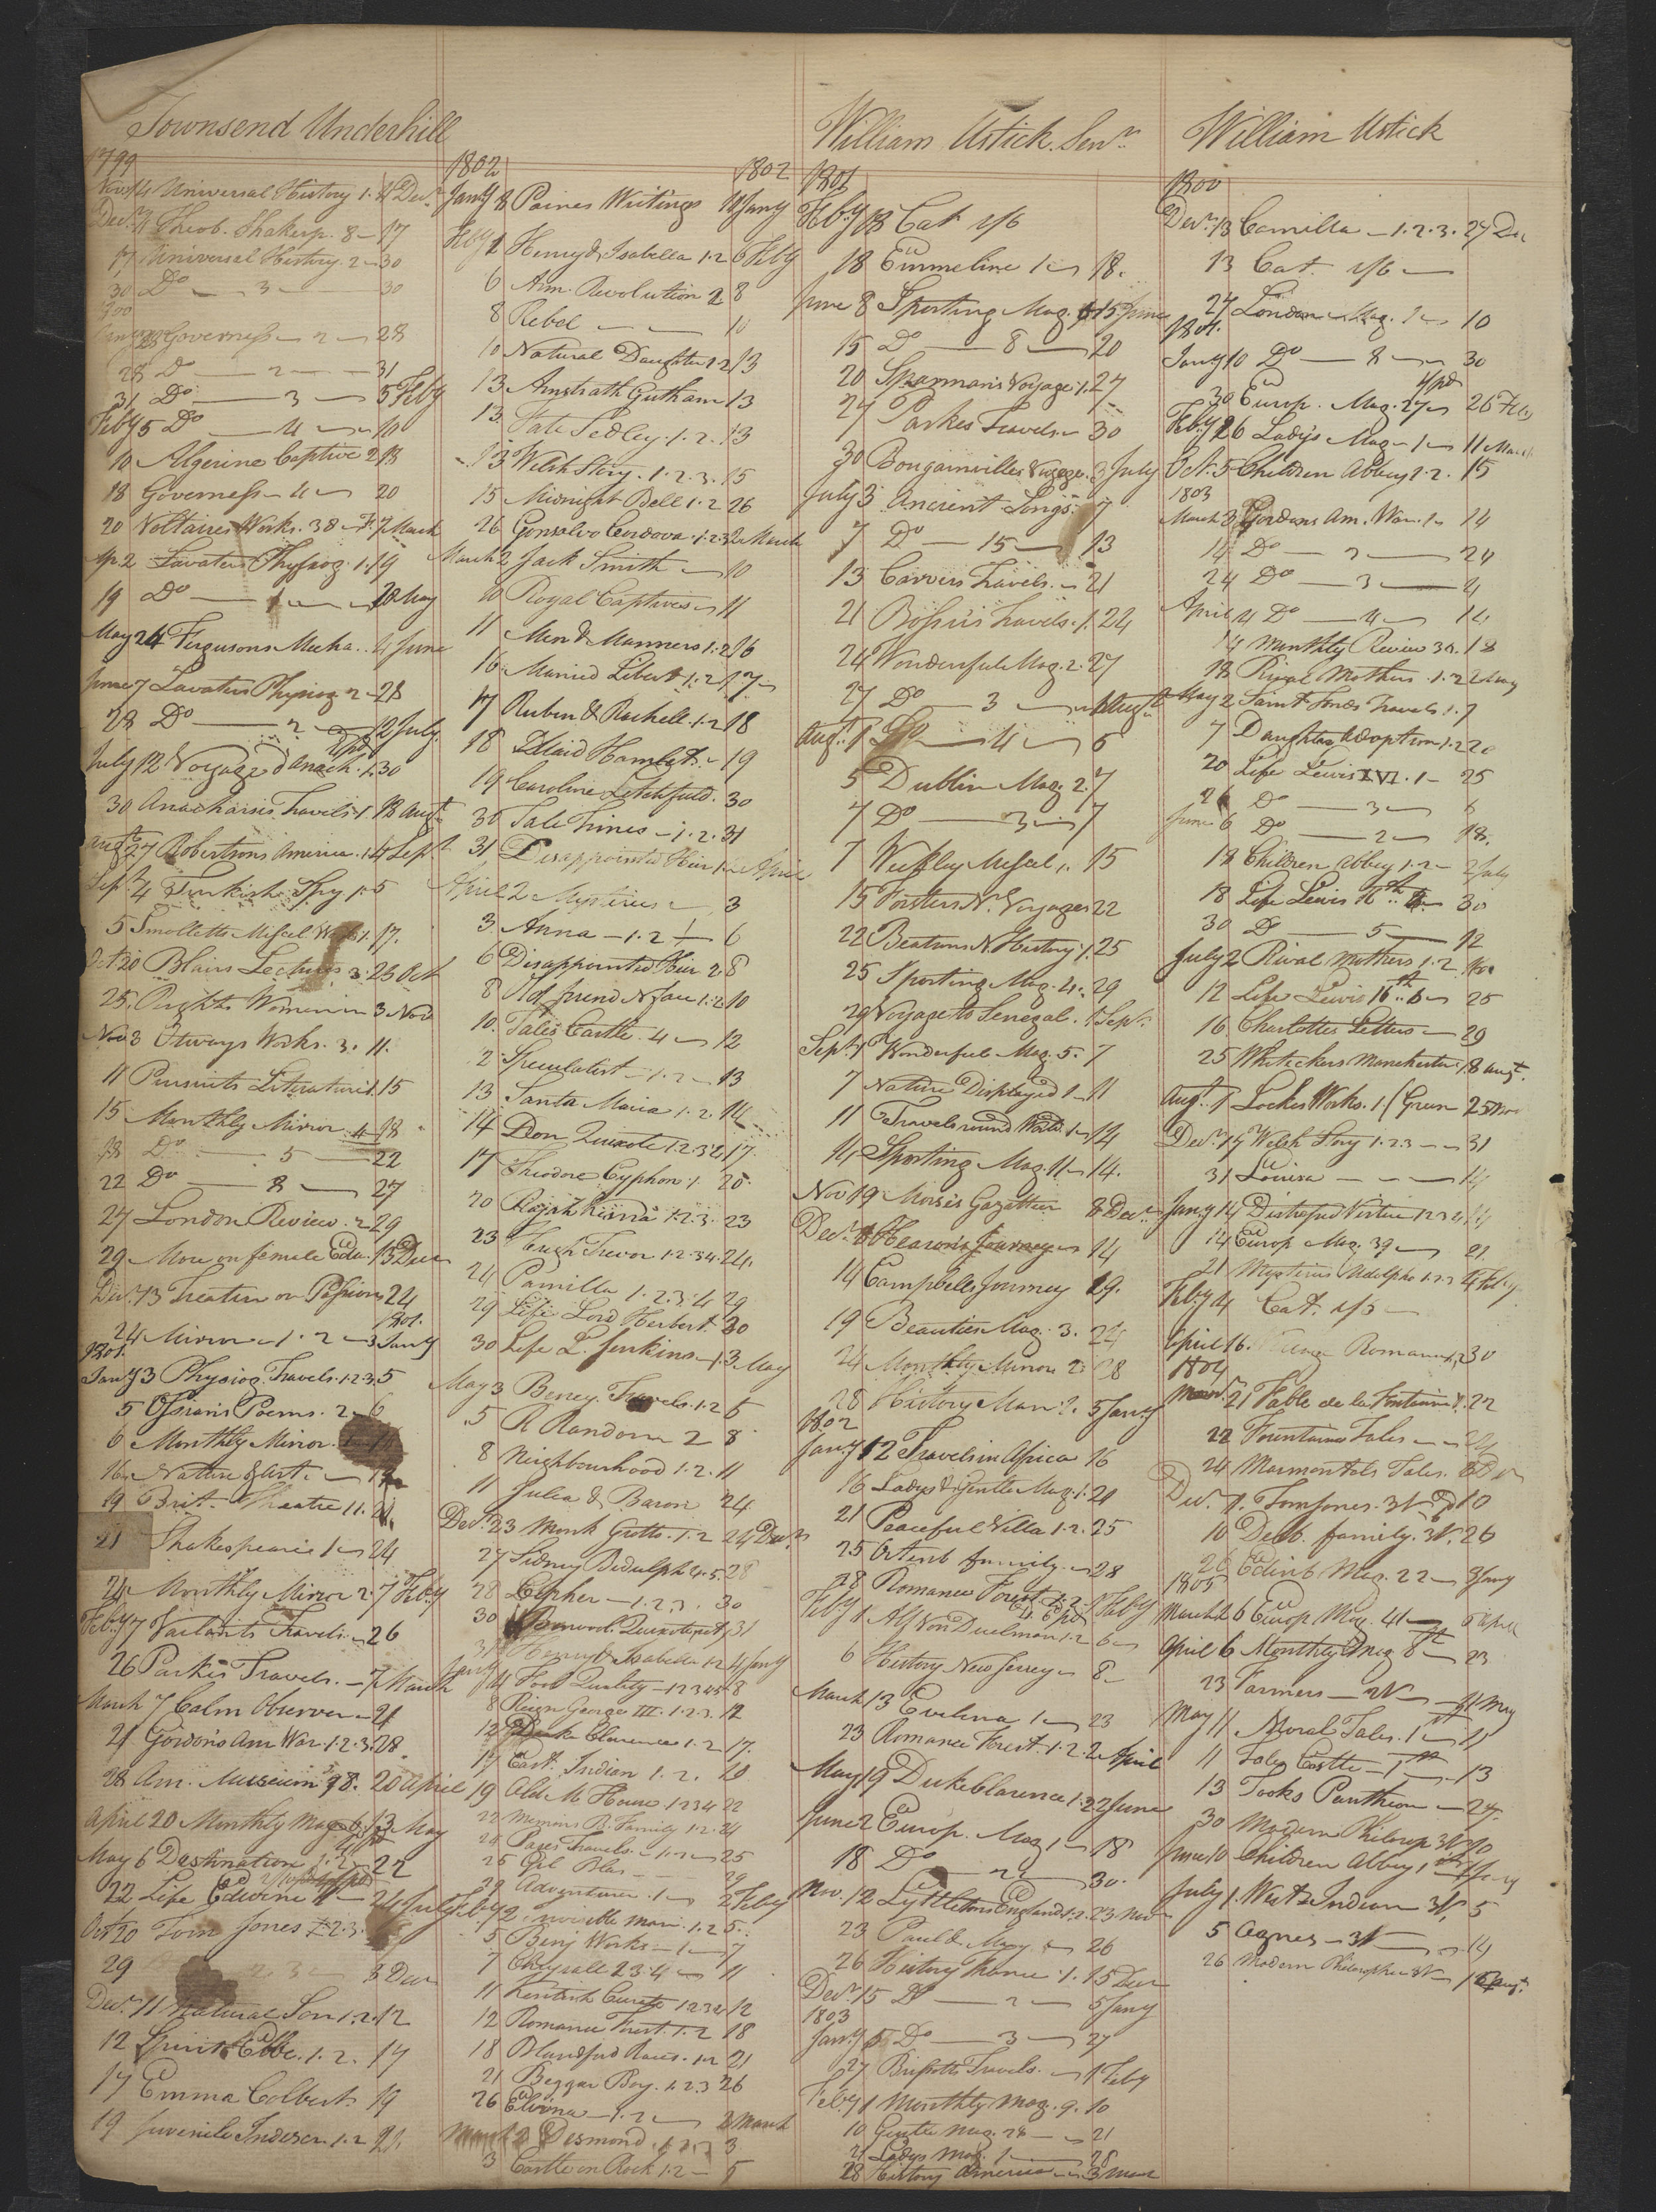 Townsend Underhill
1799
Novr 14 Universal History 1. 4 Decr
Decr 4 Theob. Shakesp. 8 17
17 Universal History. 2 30
30 Do 3 30
Governess 2 28
28 Do 2 31
31 Do 3 5 Feby
Feby 5 Do 4 10
10 Algerine Captive 2 18
18 Governess 4 20
20 Voltaires Works. 38 7 March
Ap. 2 Lavaters Physiog. 1. 19
19 Do 1 20 May
May 24 Fergusons Mecha. 4 June
June 7 Lavaters Physiog 2 28
28 Do 2 12 July
July 12 Voyage d'Anach. 1. 30
30 Anacharsis Travels 1. 18 Augt
Augt 27 Robertsons America. 1. 4 Sepr
Sepr 4 Turkish Spy 1. 5
5 Smolletts Miscel Works 1. 17.
Oct 20 Blairs Lectures 3. 25 Oct
25. Rights Women 3 Nov
Nov 3 Otways Works. 3. 11.
11 Pursuits Literature 1. 15
15 Monthly Mirror 4 18
18 Do 5 22
22 Do 8 27
27 London Review. 2 29
29 More on female Edu. 13 Decr
Decr 13 Treatise on Passions 24
24 Mirror 1. 2 3 Jany
1801.
Jany 3 Physiog. Travels. 1.2.3. 5
5 Ossian's Poems. 2 6
6 Monthly Mirror.
16 Nature & Art.
19 Brit. Theatre 11. 21.
21 Shakespeare 1 24
24 Monthly Mirror 2. 7 Feby
Feby 7 Vaillants Travels 26
26 Parkes Travels. 7 March
March 7 Calm Observer 21
21 Gordons Am War. 1.2.3. 28.
28 Am. Museum 20 April
April 20 Monthly Mag. 6. 13 May
May 6 Destination 1. 2. 22
22 Life Edwine 24 July
Oct 20 Tom Jones 1.2.3.
29 3 Decr
Decr 11 Natural Son 1. 2. 12
12 Spirit Elbe. 1. 2. 17
17 Emma Colbert 19
19 Juvenile Indiscr. 1. 2 22.
1802 1802
Jany 8 Paines Writings 11 Jany
Feby 1 Henry & Isabella 1.2 6 Feby
6 Am. Revolution 2 8
8 Rebel 10
10 Natural Daughter 1.2 13
13 Anstrath Gutham 13
13 Fate Sedley. 1. 2. 13
13 Welsh Story. 1. 2. 3. 15
15 Midnight Bell 1. 2 26
26 Gonsalvo Cordova. 1.2.3 2 March
March 2 Jack Smith 10
10 Royal Captives 11
11 Men & Manners 1. 2 16
16 Married Libert. 1. 2 17
17 Ruben & Rachell. 1. 2 18
18 Maid Hamlet. 19
19 Caroline Letchfield. 30
30 Tale Times 1. 2. 31
31 Disappointed Heir 1. 2 April
April 2 Mysteries 3
3. Anna 1. 2 6
6 Disappointed Heir 2 8
8 Old friend N face 1. 2 10
10. Tales Castle. 4 12
2 Speculatist 1. 2 13
13 Santa Maria 1. 2. 14
14 Don Quixote 1.2.3.4 17.
17 Theodore Cyphon 1 20
20 Rajah Kisna 1.2.3. 23
23 Hugh Trevor 1.2.3.4. 24.
24 Pamilla 1. 2. 3. 4 29
29 Life Lord Herbert 30
30 Life L. Jenkins 1. 3 May
May 3 Beney. Travels. 1. 2 5
5 R Random 2 8
8 Neighbourhood 1. 2. 11
11 Julia & Baron 24
Decr 23 Monk Grotto. 1. 2 24 Decr
27 Sidney Bidulph 4. 5. 28
28 Cypher 1.2.3. 30
30 Quixote 31
31 Henry & Isabella 1.2 4 Jany
Jany 4 Fool Quality 1 2 3 4 5 8
8 Reign George III. 1. 2. 3. 12
12 Duke Clarence 1. 2 17.
17 East Indian 1. 2. 19
19 Old M House 1 2 3 4 22
22 Memoirs B. Family 1. 2. 24
24 Pages Travels. 25
25 Gil Blas 29
29 Adventurer. 1 2 Feby
Feby 2 Invisible man. 1. 2 5.
5 Benj Works 1 7
7 Chrysall 2. 3. 4 11
11 Kentish Curate 1 2 3 4 12
12 Romance Forest. 1. 2 18
18 Blandford Races. 1. 2 21
21 Beggar Boy. 1. 2. 3 26
26 Elvina 1. 2 2 March
March 2 Desmond. 1. 2. 3
3 Castle on Rock 1. 2 5
William Ustick. Senr
1801
Feby 18 Cat 1/6
18 Emmeline 1 18.
June 8 Sporting Mag. 15 June
15 Do 8 20
20 Sparmans Voyage. 1. 27
27 Parkes Travels. 30
30 Bougainvilles Voyage 3 July
July 3 Ancient Songs 7
7 Do 15 13
13 Carvers Travels. 21
21 Bossus Travels. 1. 24
24 Wonderful Mag. 2. 27
27 Do 3 1 Augt
Augt 1 Do 4 5
5 Dublin Mag. 2. 7
7 Do 3 7
7 Weekly Miscel 1. 15
15 Forsters N. Voyages 22
22 Beatons N. History. 1. 25
25 Sporting Mag. 4. 29
29 Voyage to Senegal. 1 Sepr
Sepr 1 Wonderful Mag. 5. 7
7 Nature Displayed 1 11
11 Travels round World. 1 14
14 Sporting Mag. 11 14.
Nov 19 Morse's Gazatteer 8 Decr
Decr 8 Hearons Journey 14
14 Campbells Journey 19.
19 Beauties Mag. 3. 24
24 Monthly Mirror 2 28
28 History Man 2. 5 Jany
1802
Jany 12 Travels in Africa 16
16 Ladys & Gentle Mag. 1. 21
21 Peaceful Villa 1. 2. 25
25 Ortenb family. 28
28 Romance Forest 1. 2. 1 Feby
Feby 1 Alf Von Duelman 1.2 6
6 History New Jersey 8
March 13 Evelina 1 23
23 Romance Forest. 1. 2. 2 April
May 19 Duke Clarence 1. 2 2 June
June 2 Europ. Mag 1 18
18 Do 2 30.
Nov. 12 Lyttletons England 1. 2. 23 Nov
23 Paul & Mary 26
26 History France. 1. 15 Decr
Decr 15 Do 2 5 Jany
1803
Jany 5 Do 3 27
27 Brissotts Travels. 1 Feby
Feby 1 Monthly Mag. 9. 10
10 Gentle Mag. 28 21
21 Ladys Mag. 1 28
28 History America 3 Mar
William Ustick
1800
Decr 13 Camilla 1. 2. 3. 27 Dec
13 Cat. 1/6
27 London Mag. 1 10
1801.
Jany 10 Do 8 30
30 Europ. Mag. 27 26 Feby
Feby 26 Ladys Mag. 1 11 March
Oct. 5 Children Abbey 1. 2. 15
1803
March 3 Gordons Am. War. 1 14
14 Do 2 24
24 Do 3 4
April 4 Do 4 14
14 Monthly Review 30. 18
18 Rival Mothers. 1. 2 2 May
May 2 Saint Fonds Travels 1. 7
7 Daughter adoption 1. 2 20
20 Life Lewis XVI. 1 25
26 Do 3 6
June 6 Do 2 18.
18 Children Abbey 1. 2 2 July
18 Life Lewis 16th 30
30 Do 5 12
July 2 Rival Mothers 1. 2
12 Life Lewis 16th 6 25
16 Charlottes Letters 29
25 Whitickers Manchester 18 augt.
Augt 1 Lockes Works. 1. 25 Nov
Decr 17 Welsh Story 1. 2. 3 31
31 Louisa 14
Jany 14 Distressed Virtue 1 2 3
14 Europ Mag. 39 21
21 Mysteries Udolpho 1. 2. 3 4 Feby
Feby 4 Cat. 1/6
April 16. Romance 30
1804
21 Fable de la Fontaine 1. 22
22 Fountaines Tales 24
24 Marmontels Tales.
Decr 1. Tom Jones. 3 V 10
10 Delb. family. 3 V. 26
26 Edinb Mag. 22 3 Jany
1805
March 26 Europ Mag. 41 6 April
April 6 Monthly Mag 8 23
23 Farmers 2 V 11 May
May 11 Moral Tales. 1 V 11
11 Castle 13
13 Tooks Pantheon 27.
30 Modern Philosop 3 V 10
June 10 Children Abbey 1
July 1. West Indian 3 V. 5
5 Agnes 3 V 14
26 Modern Philosopher 3 V Augt.